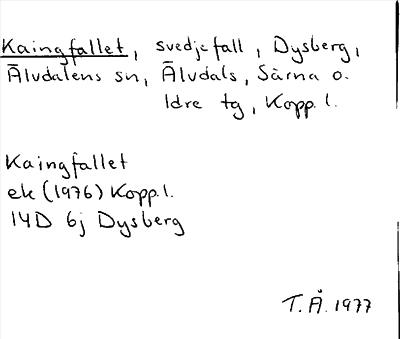 Kaingfallet, svedjefall, Dysberg,
Älvdalens sn, Älvdals, Särna o.
Idre tg, Kopp. l.
Kaingfallet
ek (1976) Kopp. l.
14D 6j Dysberg
T. Å. 1977